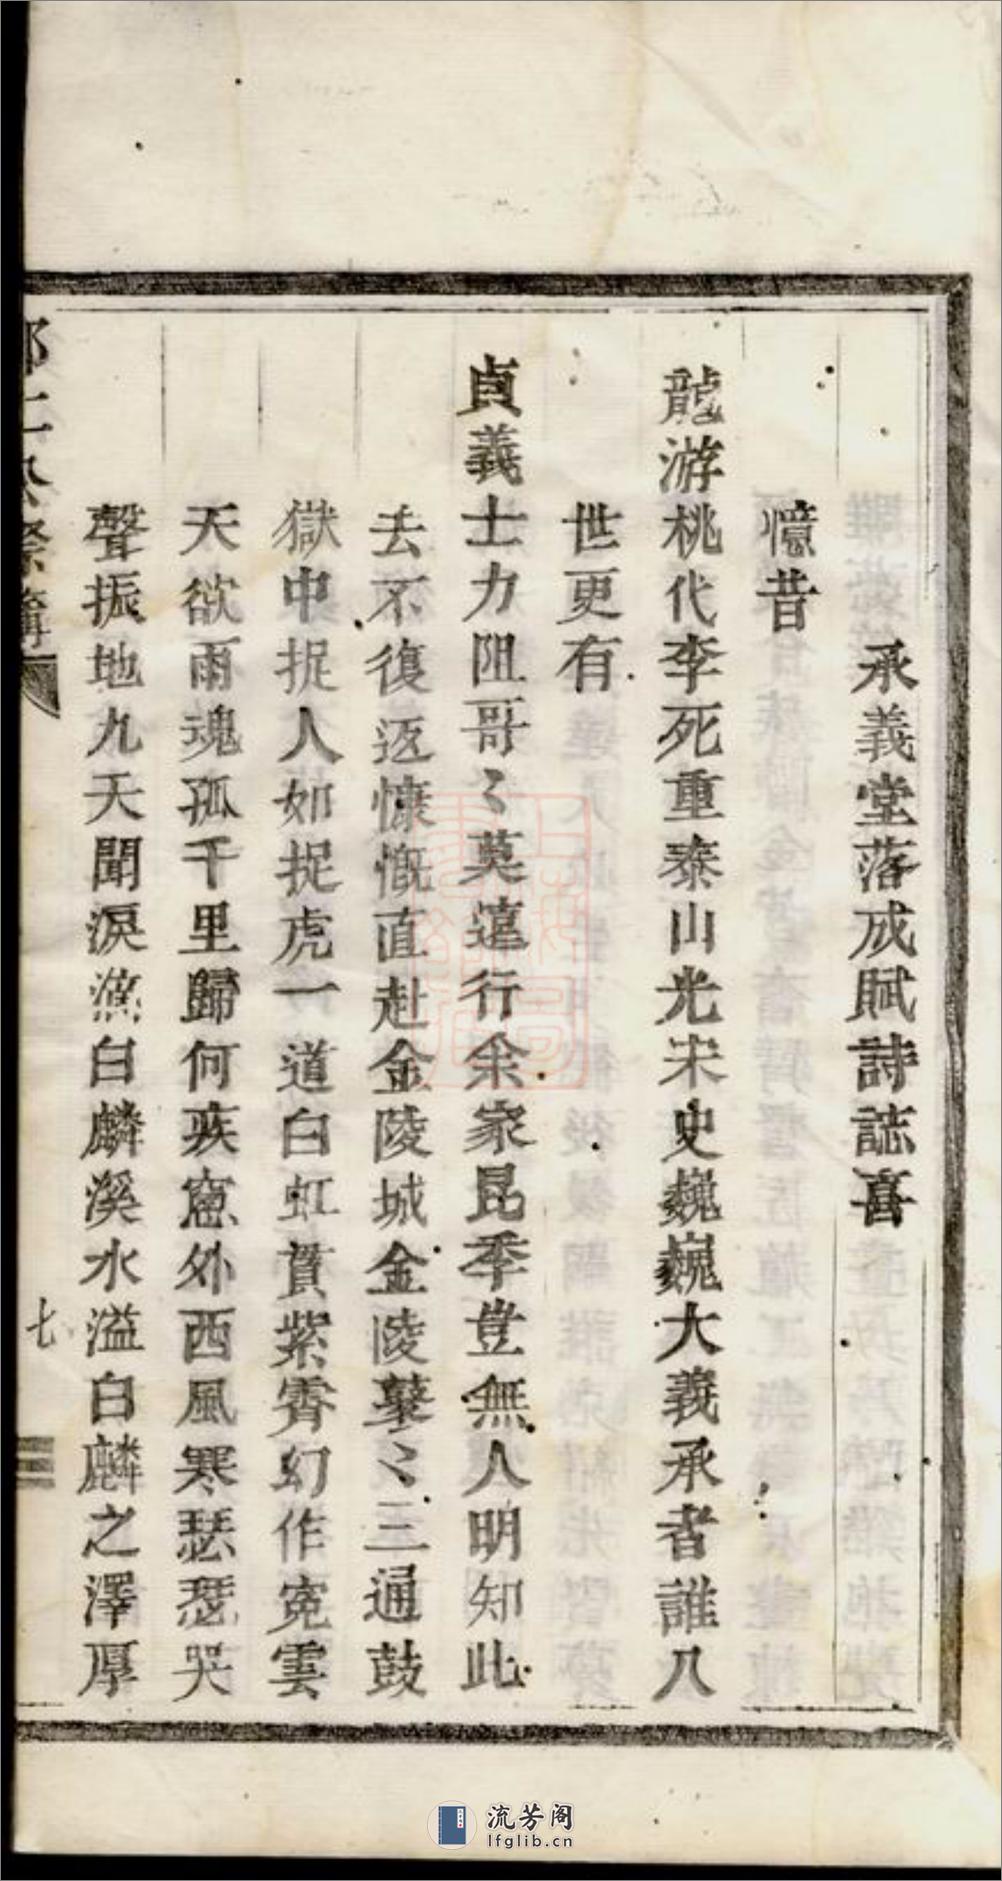 承義堂落成賦詩誌喜
憶昔
龍游桃代李死重泰山光宋史巍巍大義承者誰八
世更有
貞義士力阻哥〻莫遠行余家昆季豈無人明知此
去不復返慷慨直赴金陵城金陵擊〻三通鼓
獄中捉人如捉虎一道白虹貫紫霄幻作寃雲
天欲雨魂孤千里歸何疾窻外西風寒瑟瑟哭
聲振地九天聞淚漁白麟溪水溢白麟之澤厚
七
流芳阁
lfglib.cn